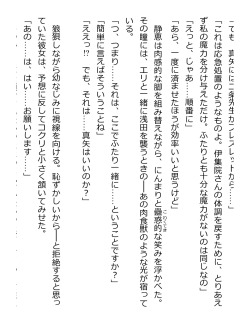 でも、真矢に
「これは応急処置のようなものよ。伊集院さんの体調を戻すために、とりあえ
ず私の魔力を分け与えただけ。ふたりとも十分な魔力がないのは同じなの」
「えっと、じゃあ……順番に」
「あら、一度に済ませたほうが効率いいと思うけど」
静恵は肉感的な脚を組み替えながら、にんまりと蠱惑的な笑みを浮かべた。
その瞳には、エリと一緒に浅田を襲うときの――あの肉食獣のような光が宿って
いる。
「つ、つまり……それは、ここでふたり一緒に……ということですか？」
「簡単に言えばそういうことね」
「ええっ!?　でも、それは……真矢はいいのか？」
狼狽しながら幼なじみに視線を向ける。恥ずかしいから――と拒絶すると思っ
ていた彼女は、予想に反してコクリと小さく頷いてみせた。
「あの……は、はい……お願いします……」